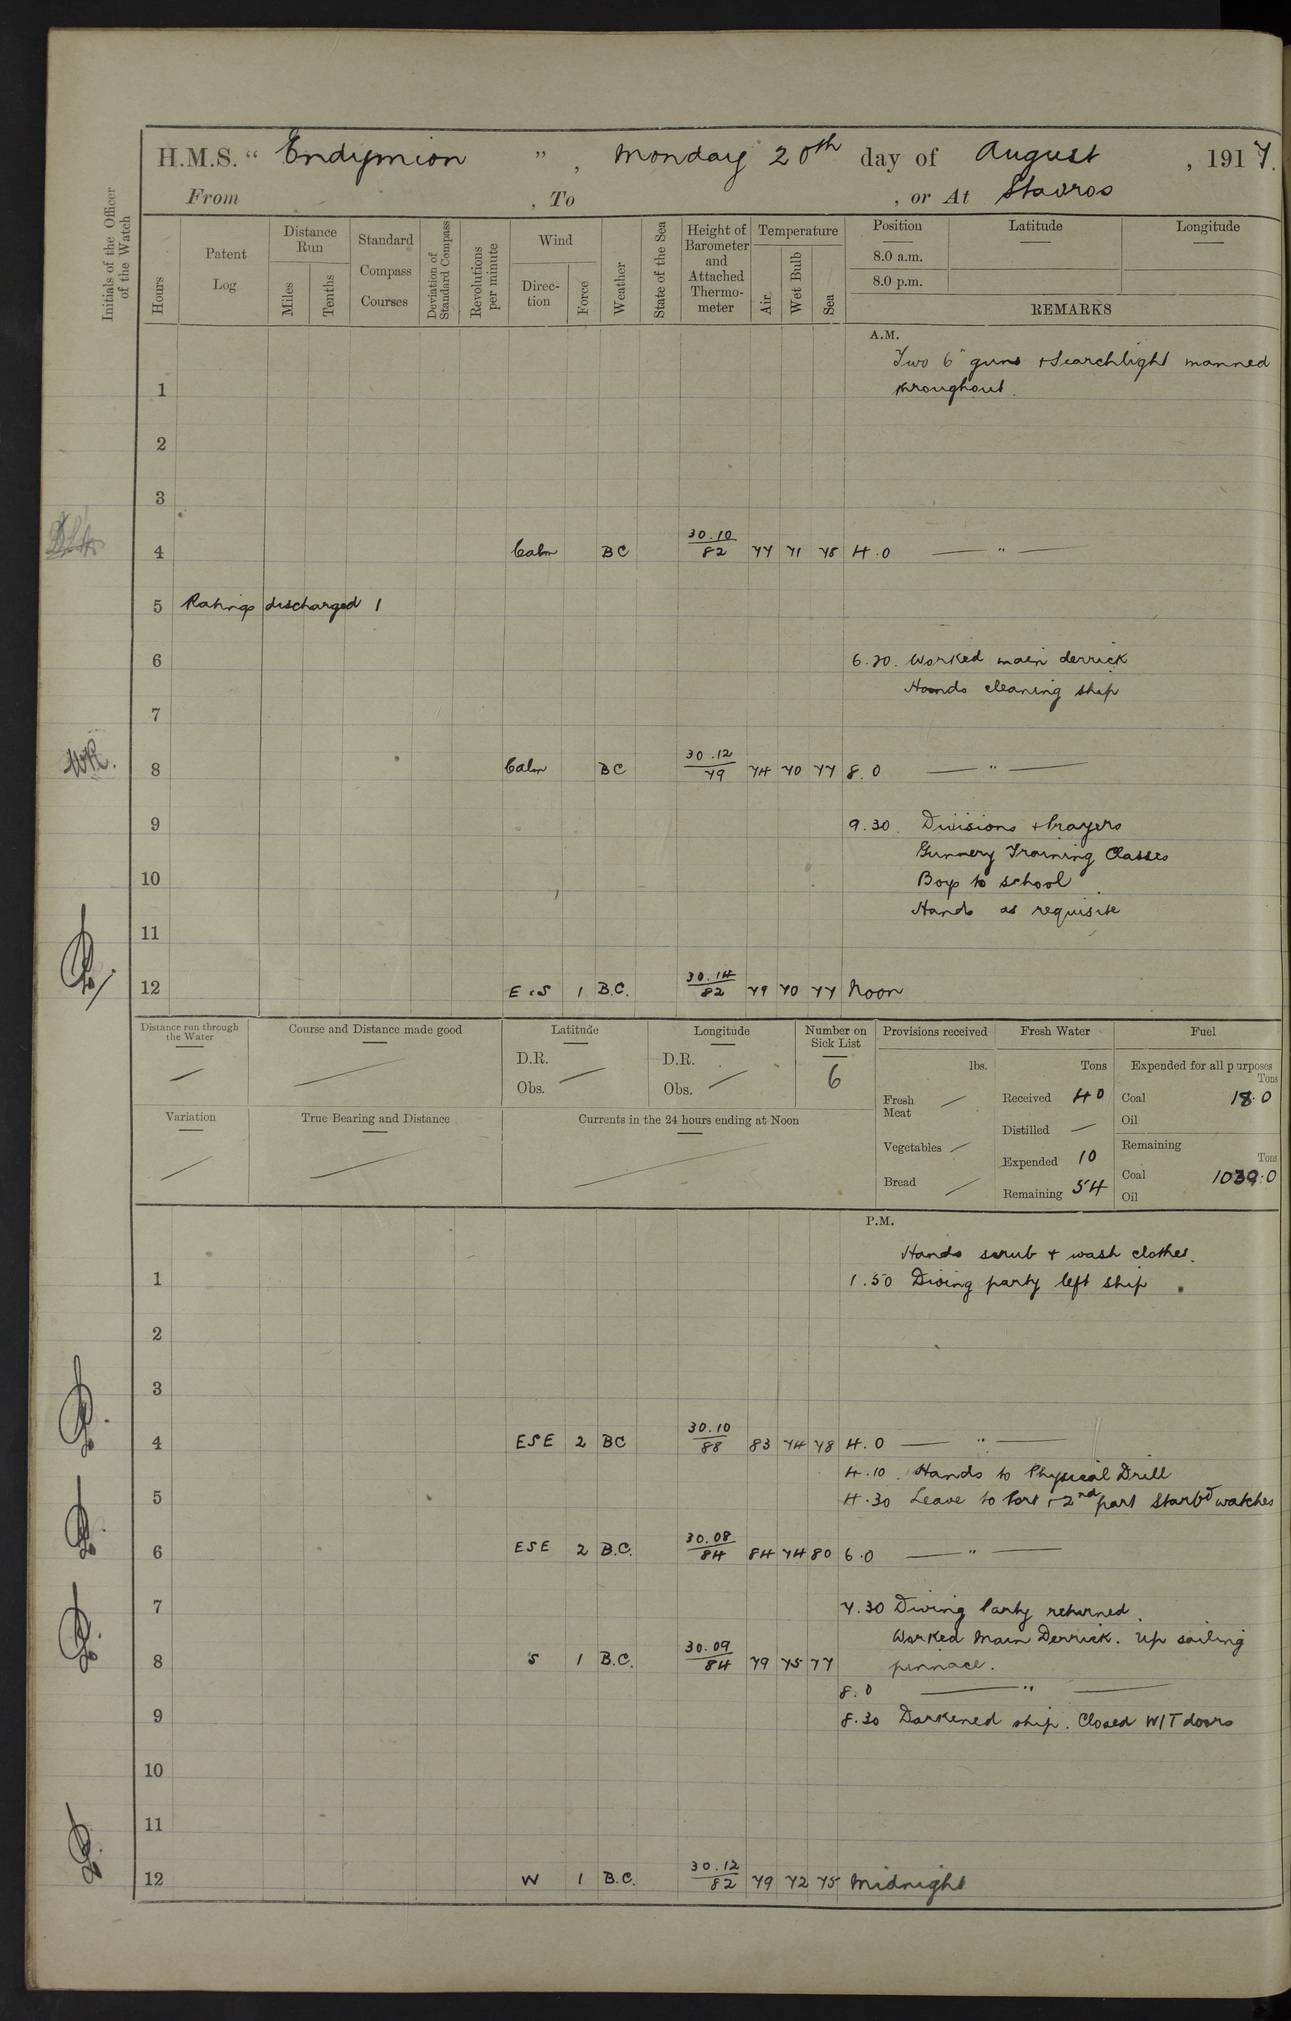 H.M.S. " Endymion ", Monday 20th day of August, 1917.
From , To , or At Stavros
Initials of the Officer of the Watch
Hours
Patent Log
Distance Run
Miles
Tenths
Standard Compass Courses
Deviation of Standard Compass
Revolutions per minute
Wind
Direction
Force
Weather
State of the Sea
Height of Barometer and Attached Thermometer
Temperature
Air
Wet Bulb
Sea
Position Latitude Longitude
8.0 a.m.
8.0 p.m.
REMARKS
A.M.
Two 6" guns + Searchlight manned
1 throughout.
2
3
4 Calm BC 30.10/82 77 71 78 4.0 — " —
5 Ratings discharged 1
6 6.20. Worked main derrick
Hands cleaning ship
7
8 Calm BC 30.12/79 74 70 77 8.0 — " —
9 9.30. Divisions + Prayers
Gunnery Training Classes
10 Boys to school
Hands as requisite
11
12 E.S 1 B.C. 30.14/82 79 70 77 Noon
Distance run through the Water
Course and Distance made good
Latitude
D.R.
Obs.
Longitude
D.R.
Obs.
Number on Sick List
6
Provisions received
lbs.
Fresh Meat
Vegetables
Bread
Fresh Water
Tons
Received 40
Distilled —
Expended 10
Remaining 54
Fuel
Expended for all purposes
Tons
Coal 18.0
Oil
Remaining
Tons
Coal 1039.0
Oil
Variation
True Bearing and Distance
Currents in the 24 hours ending at Noon
P.M.
Hands scrub + wash clothes.
1 1.50 Diving party left ship
2
3
4 ESE 2 BC 30.10/88 83 74 78 4.0 — " —
4.10. Hands to Physical Drill
5 4.30 Leave to Port + 2nd part Starbd watches
6 ESE 2 B.C. 30.08/84 84 74 80 6.0 — " —
7 7.30 Diving Party returned.
Worked Main Derrick. Up sailing
8 S 1 B.C. 30.09/84 79 75 77 pinnace.
8.0 — " —
9 8.30 Darkened ship. Closed W/T doors
10
11
12 W 1 B.C. 30.12/82 79 72 75 Midnight